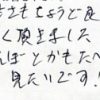 さもちょうど良
く頂きました
んほとかもたべ
見たいです!